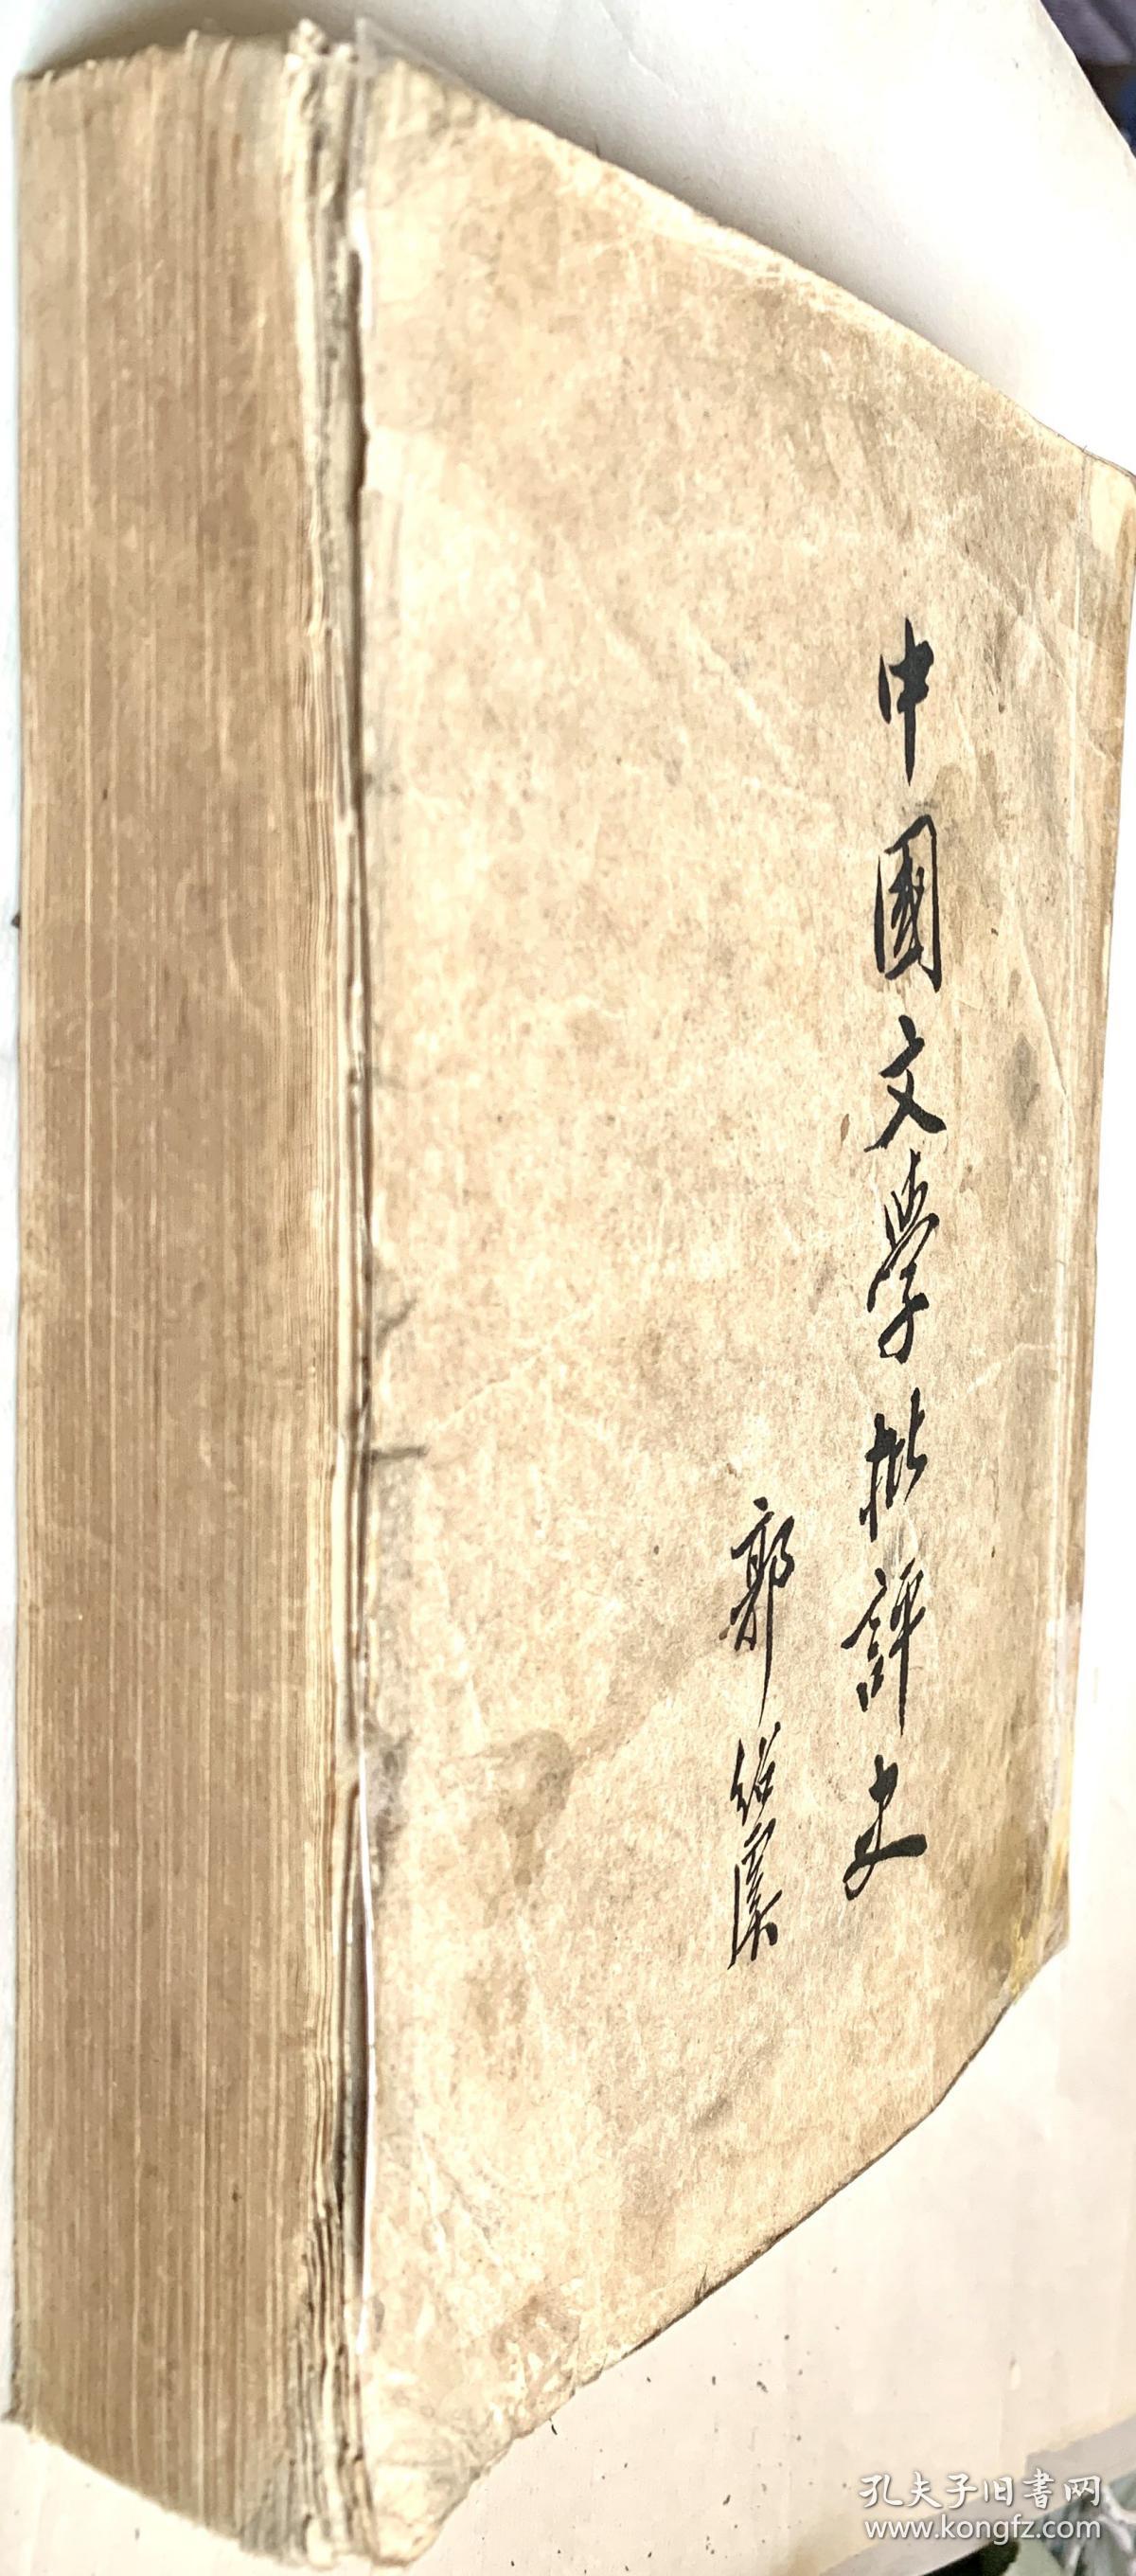 中國文學批評史
郭紹虞
孔夫子旧書网
www.kongfz.com